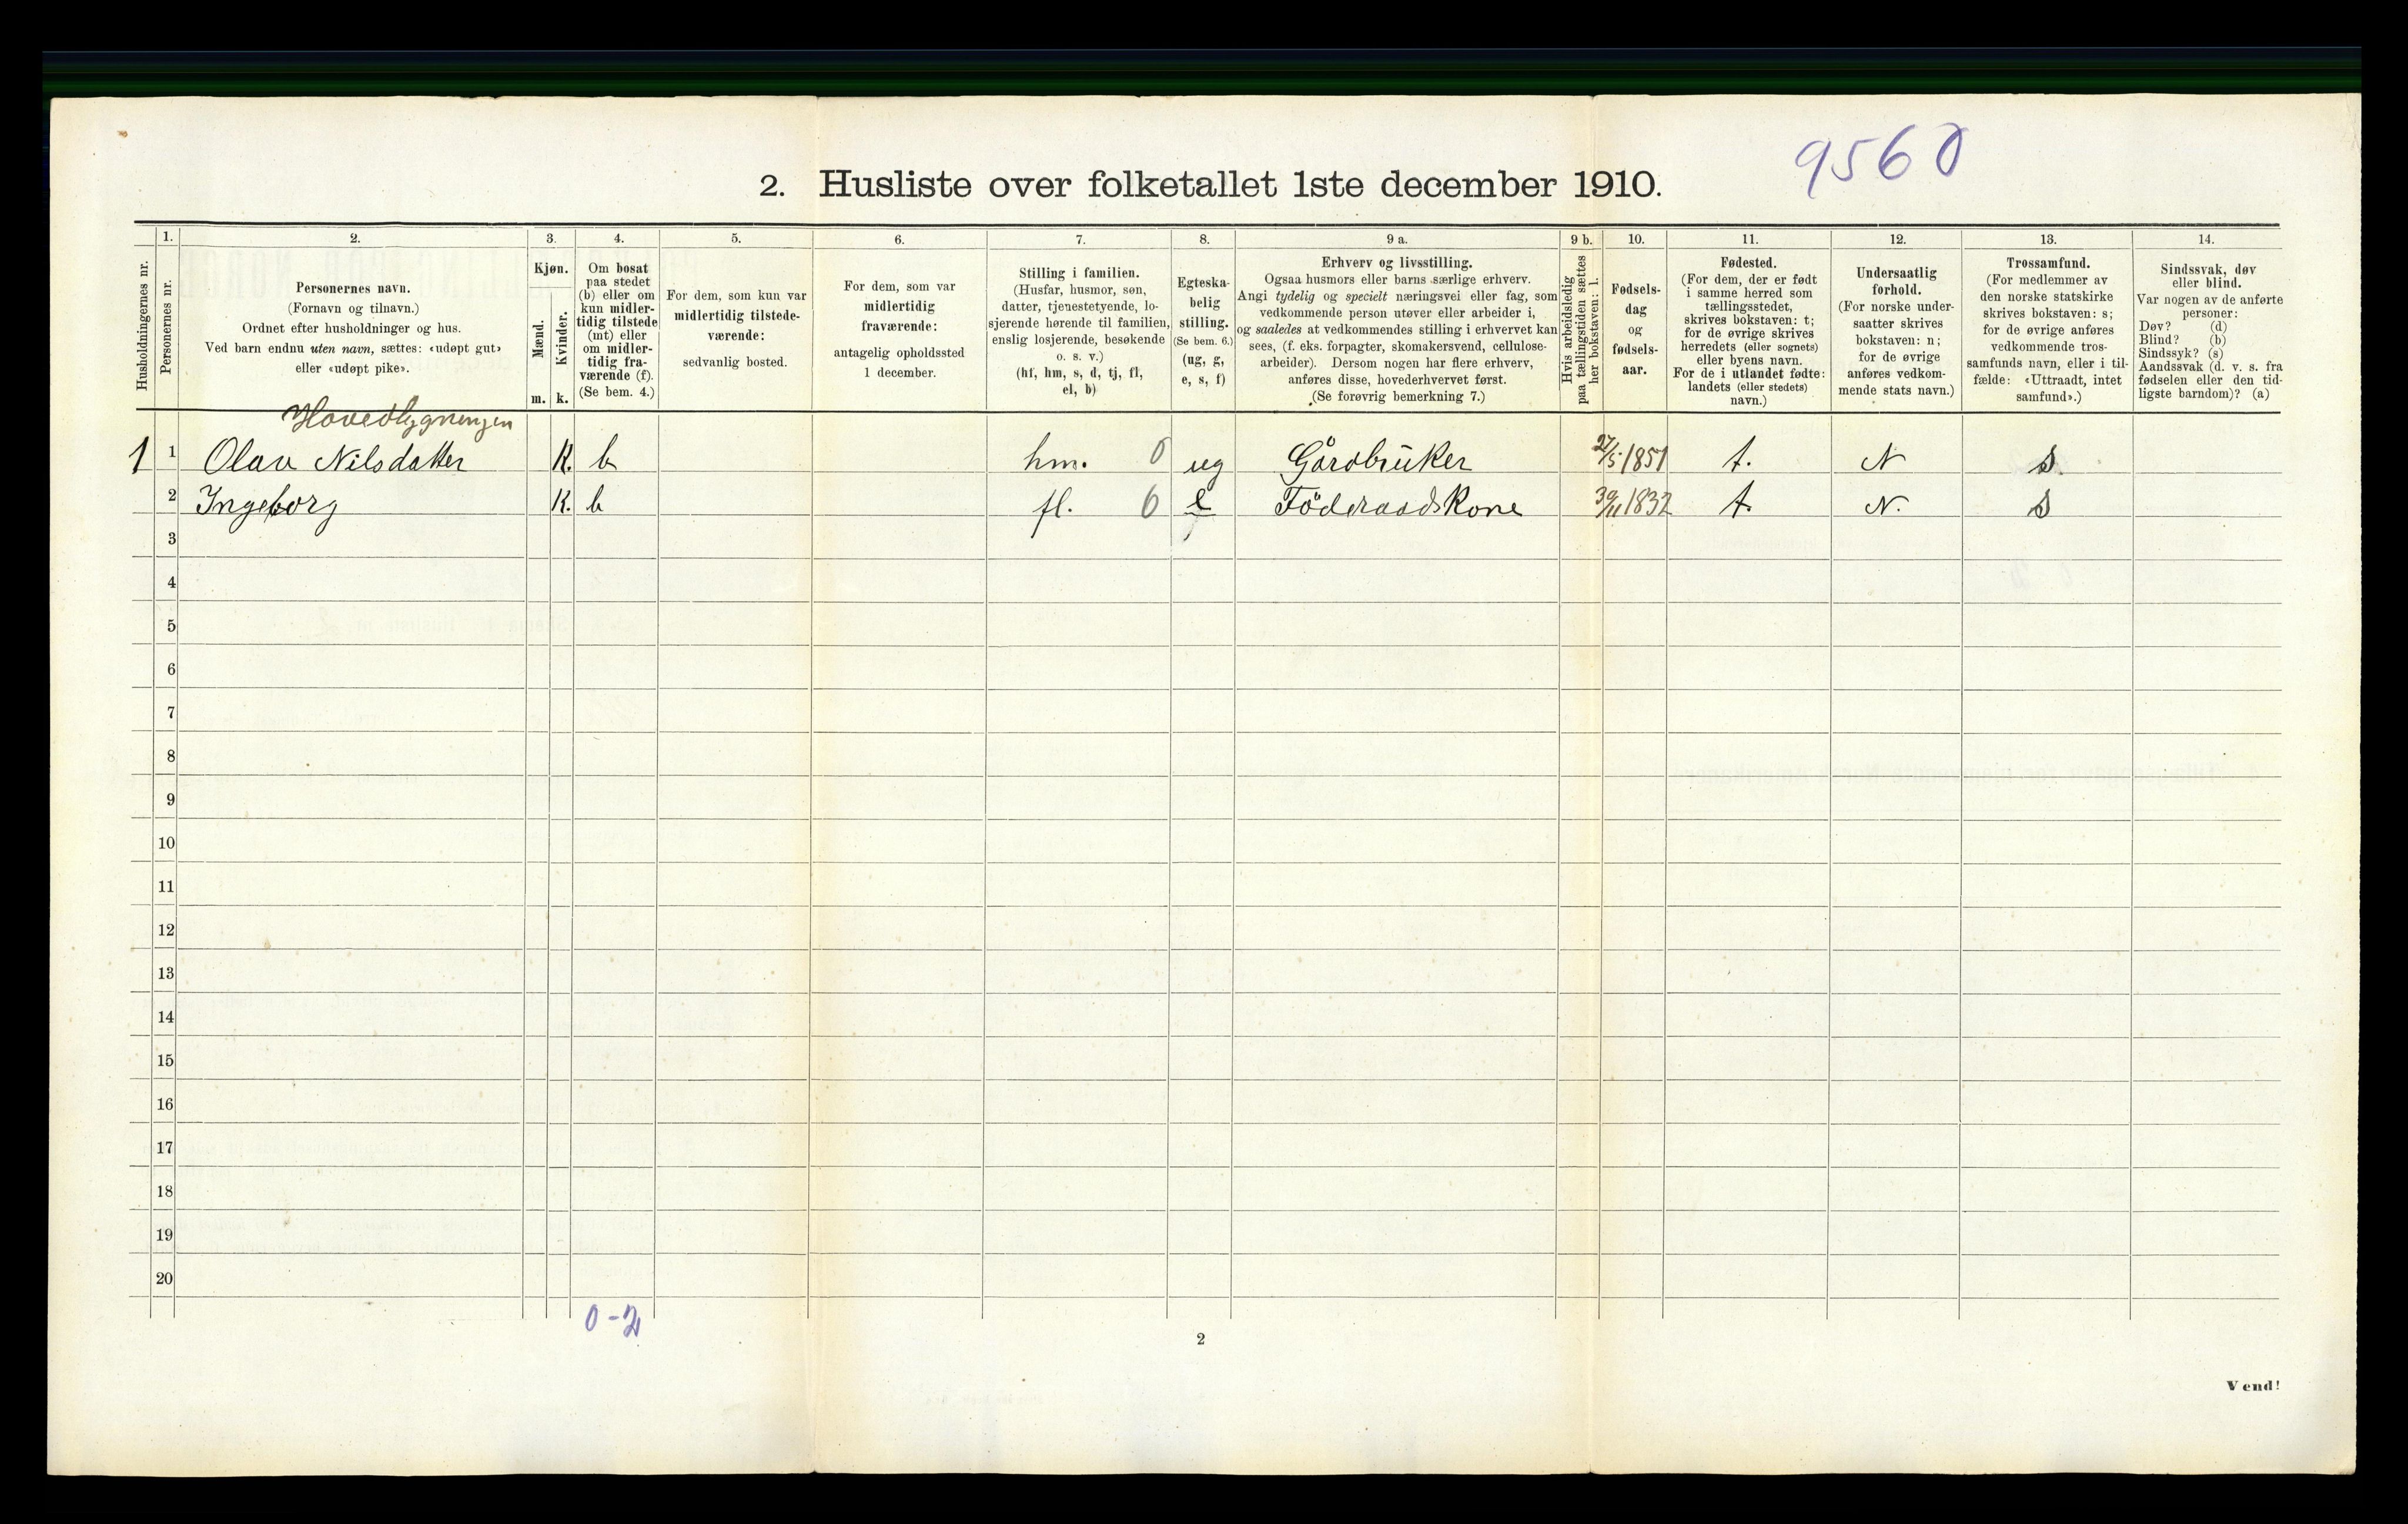 9560
2. Husliste over folketallet 1ste december 1910.
Husholdningernes nr.
1.
Personernes nr.
2.
Personernes navn.
(Fornavn og tilnavn.)
Ordnet efter husholdninger og hus.
Ved barn endnu uten navn, sættes: «udøpt gut»
eller «udøpt pike».
3.
Kjøn.
Mænd.
Kvinder.
m. k.
4.
Om bosat
paa stedet
(b) eller om
kun midler-
tidig tilstede
(mt) eller
om midler-
tidig fra-
værende (f).
(Se bem. 4.)
5.
For dem, som kun var
midlertidig tilstede-
værende:
sedvanlig bosted.
6.
For dem, som var
midlertidig
fraværende:
antagelig opholdssted
1 december.
7.
Stilling i familien.
(Husfar, husmor, søn,
datter, tjenestetyende, lo-
sjerende hørende til familien,
enslig losjerende, besøkende
o. s. v.)
(hf, hm, s, d, tj, fl,
el, b)
8.
Egteska-
belig
stilling.
(Se bem. 6.)
(ug, g,
e, s, f)
9 a.
Erhverv og livsstilling.
Ogsaa husmors eller barns særlige erhverv.
Angi tydelig og specielt næringsvei eller fag, som
vedkommende person utøver eller arbeider i,
og saaledes at vedkommendes stilling i erhvervet kan
sees, (f. eks. forpagter, skomakersvend, cellulose-
arbeider). Dersom nogen har flere erhverv,
anføres disse, hovederhvervet først.
(Se forøvrig bemerkning 7.)
9 b.
Hvis arbeidsledig
paa tællingstiden sættes
her bokstaven: l.
10.
Fødsels-
dag
og
fødsels-
aar.
11.
Fødested.
(For dem, der er født
i samme herred som
tællingsstedet,
skrives bokstaven: t;
for de øvrige skrives
herredets (eller sognets)
eller byens navn.
For de i utlandet fødte:
landets (eller stedets)
navn.)
12.
Undersaatlig
forhold.
(For norske under-
saatter skrives
bokstaven: n;
for de øvrige
anføres vedkom-
mende stats navn.)
13.
Trossamfund.
(For medlemmer av
den norske statskirke
skrives bokstaven: s;
for de øvrige anføres
vedkommende tros-
samfunds navn, eller i til-
fælde: «Uttraadt, intet
samfund».)
14.
Sindssvak, døv
eller blind.
Var nogen av de anførte
personer:
Døv? (d)
Blind? (b)
Sindssyk? (s)
Aandssvak (d. v. s. fra
fødselen eller den tid-
ligste barndom)? (a)
Hovedbygningen
1 1 Olav Nilsdatter K. b hm. 0 ug Gårdbruker 27/5 1851 t. N s
2 Ingeborg K. b fl. 0 e Föderaadskone 30/11 1832 t. N. s
3
4
5
6
7
8
9
10
11
12
13
14
15
16
17
18
19
20
0-2
2
Vend!